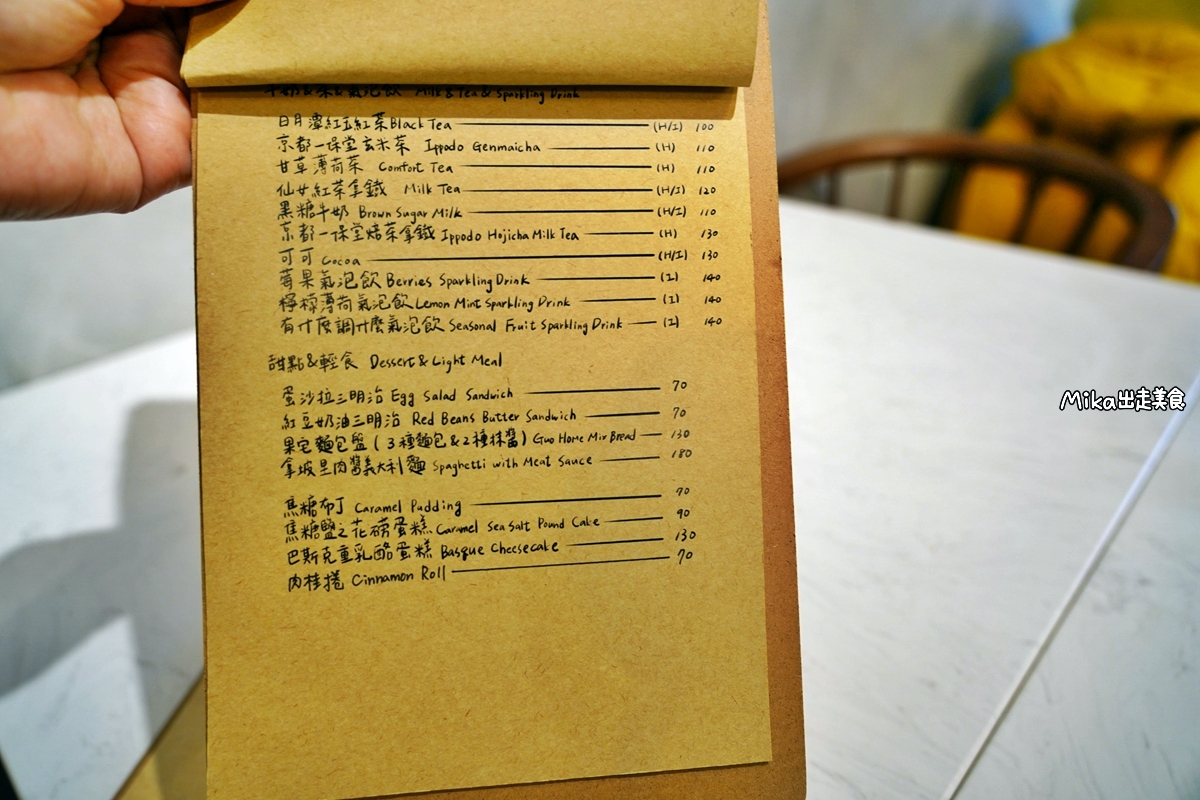 牛奶&茶&氣泡飲 Milk & Tea & Sparkling Drink
日月潭紅玉紅茶 Black Tea (H/I) 100
京都一保堂玄米茶 Ippodo Genmaicha (H) 110
甘草薄荷茶 Comfort Tea (H) 110
仙女紅茶拿鐵 Milk Tea (H/I) 120
黑糖牛奶 Brown Sugar Milk (H/I) 110
京都一保堂焙茶拿鐵 Ippodo Hojicha Milk Tea (H) 130
可可 Cocoa (H/I) 130
莓果氣泡飲 Berries Sparkling Drink (I) 140
檸檬薄荷氣泡飲 Lemon Mint Sparkling Drink (I) 140
有什麼調什麼氣泡飲 Seasonal Fruit Sparkling Drink (I) 140
甜點&輕食 Dessert & Light Meal
蛋沙拉三明治 Egg Salad Sandwich 70
紅豆奶油三明治 Red Beans Butter Sandwich 70
果宅麵包盤 (3種麵包&2種抹醬) Guo Home Mix Bread 130
拿坡里肉醬義大利麵 Spaghetti with Meat Sauce 180
焦糖布丁 Caramel Pudding 70
焦糖鹽之花磅蛋糕 Caramel Sea Salt Pound Cake 90
巴斯克重乳酪蛋糕 Basque Cheesecake 130
肉桂捲 Cinnamon Roll 70
Mika出走美食